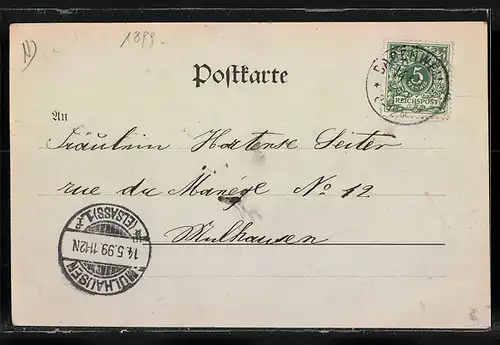 N)
1899.
Postkarte
BADENWEILER
5
REICHSPOST
An
Fräulein Hortense Seiter
rue du Manége No 12
Mulhausen
MÜLHAUSEN
14.5.99.11-12N.
(ELSASS) 1.